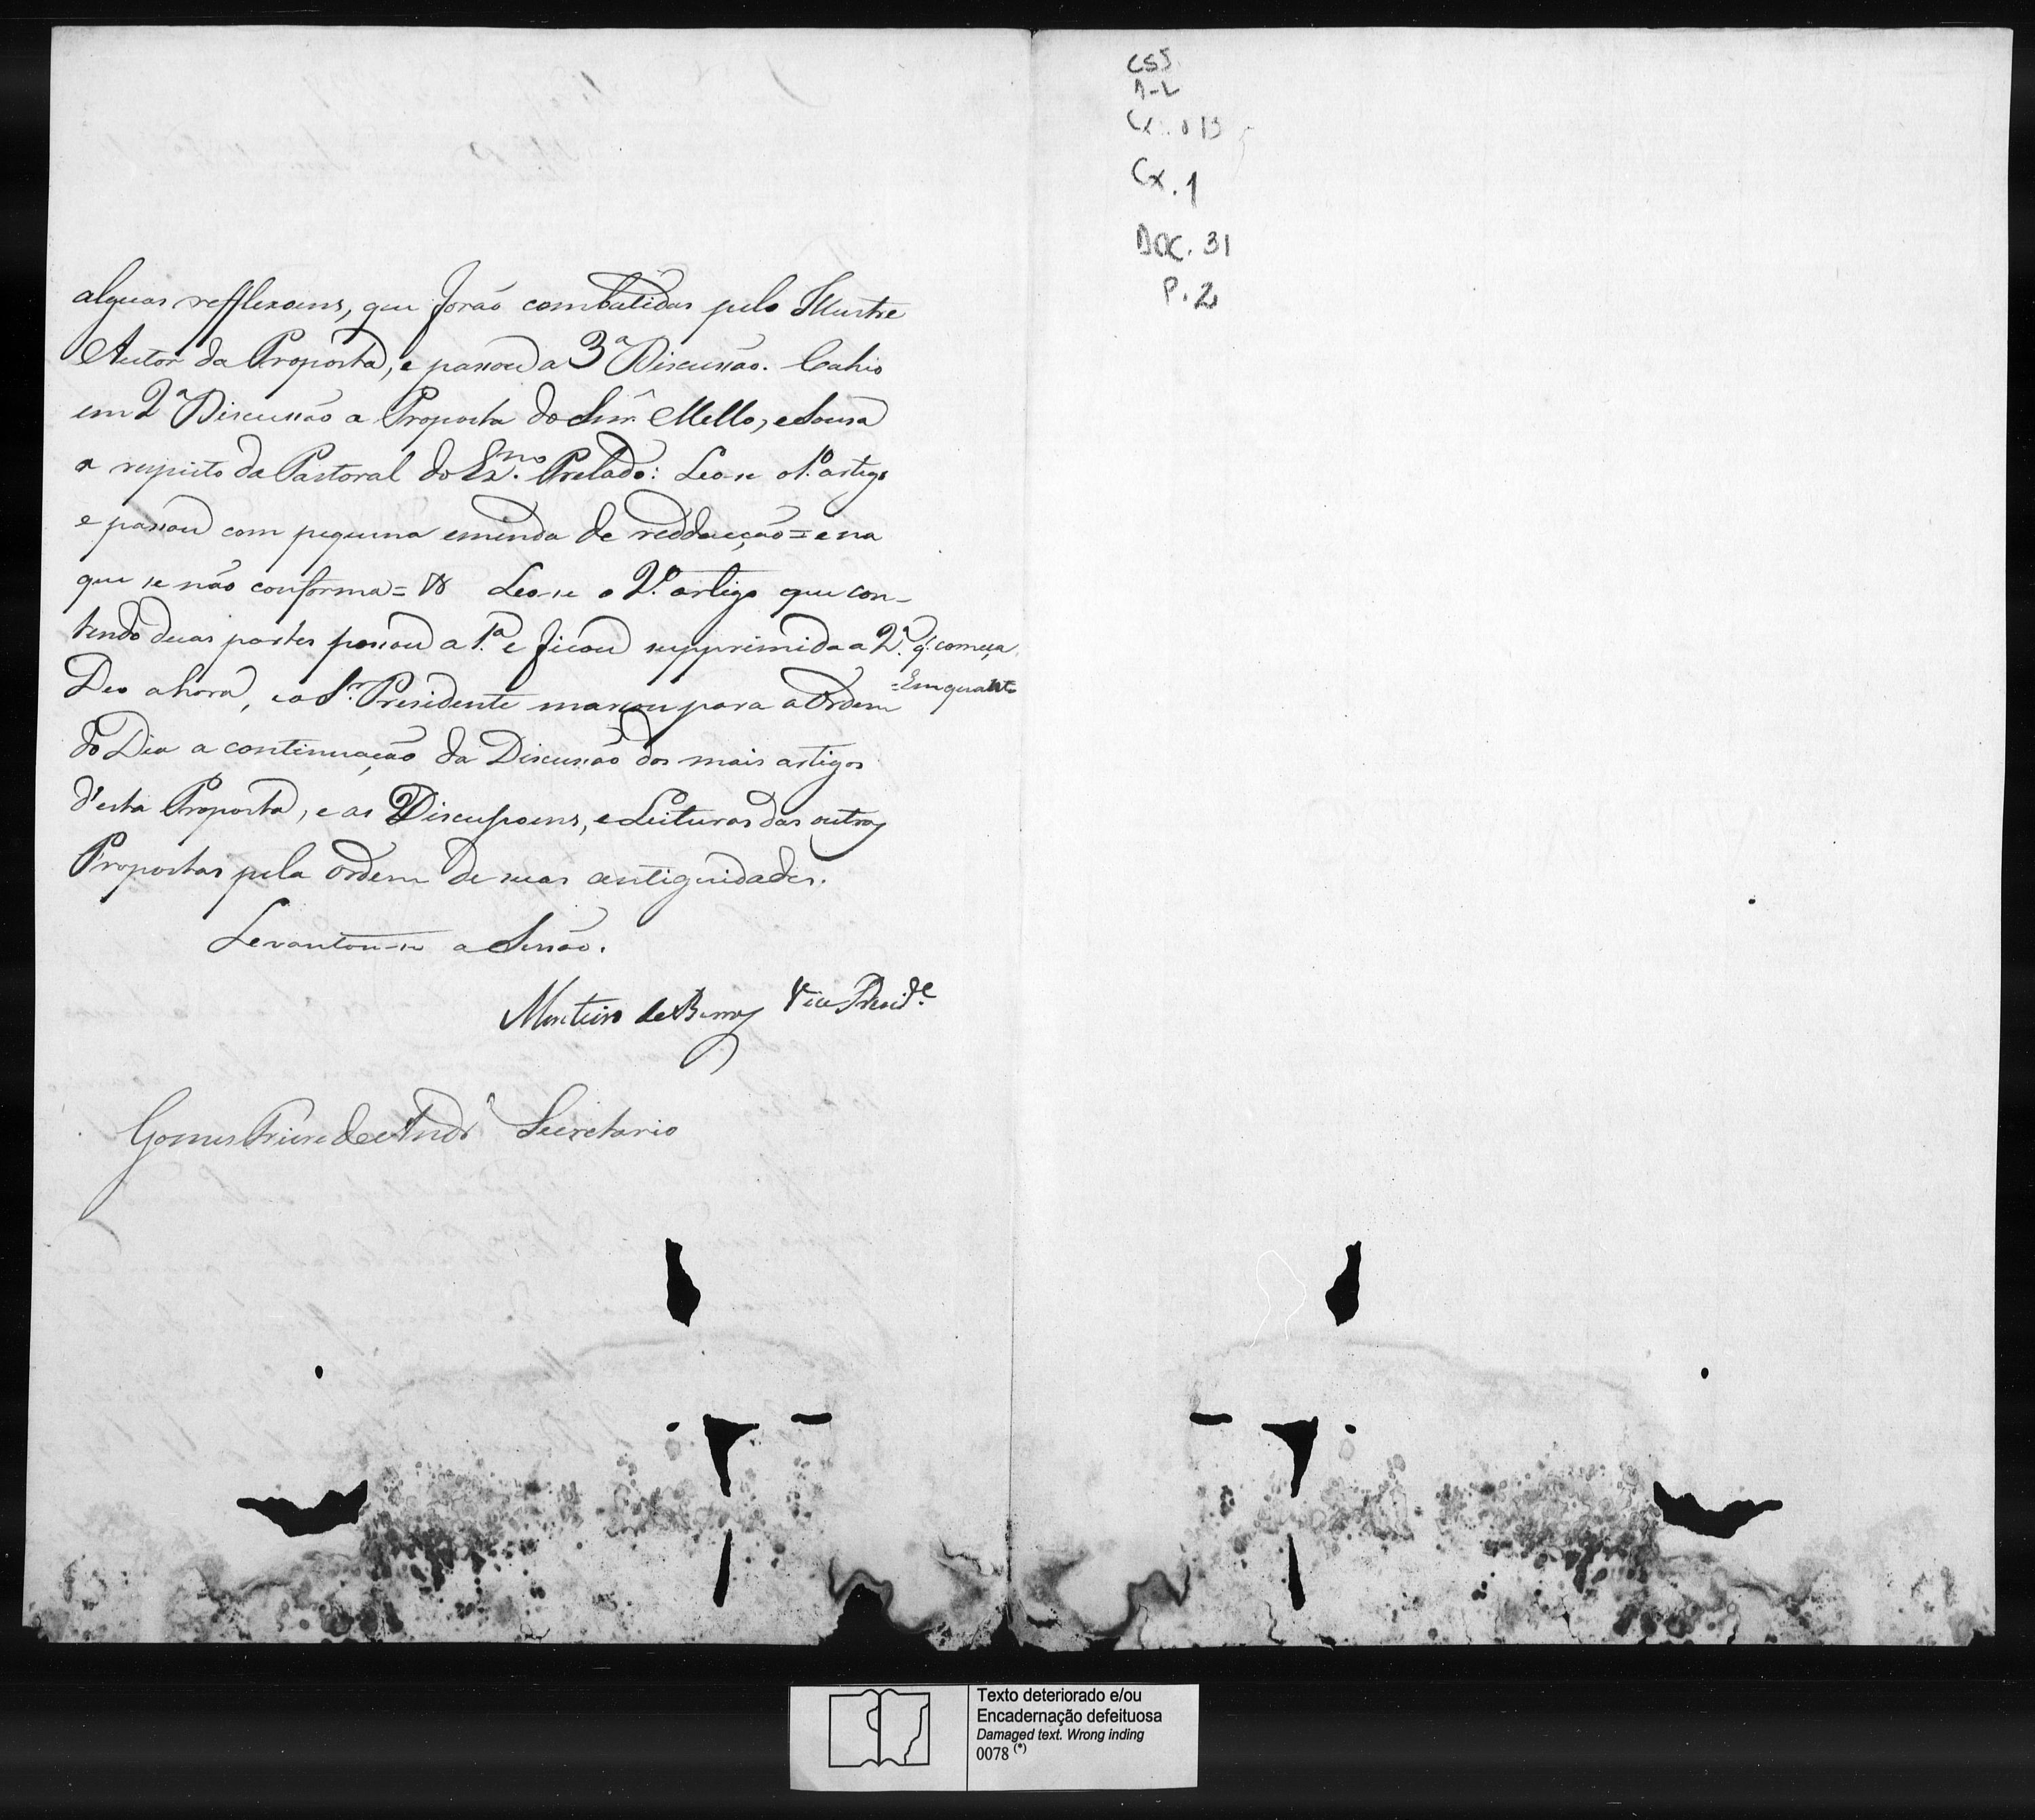 alguas refflexoens, que forão combatidas pelo Illustre
Autor da Proposta, e passou a 3ª Discussão. Cahio
em 2ª Discussão a Proposta do Snr. Mello, e Sousa
a respeito da Pastoral do Exmo. Prelado: Leo-se o 1º. artigo
e passou com pequena emenda de reddacção = e na
que se não conforma = Leo-se o 2º. artigo que con-
tendo duas partes passou a 1ª. e ficou supprimida a 2ª. q. começa
= Emquanto =
Deo a hora, e o Sr. Presidente marcou para a Ordem
do Dia a continuação da Discussão dos mais artigos
d'esta Proposta, e as Discussoens, e Leituras das outras
Propostas pela ordem de suas antiguidades.
Levantou-se a Sessão.
Monteiro de Barros Vice Presid.e
Gomes Freire de Andr.e Secretario
CSS
1-2
Cx. 1
DOC. 31
P. 2
Texto deteriorado e/ou
Encadernação defeituosa
Damaged text. Wrong inding
0078 (*)